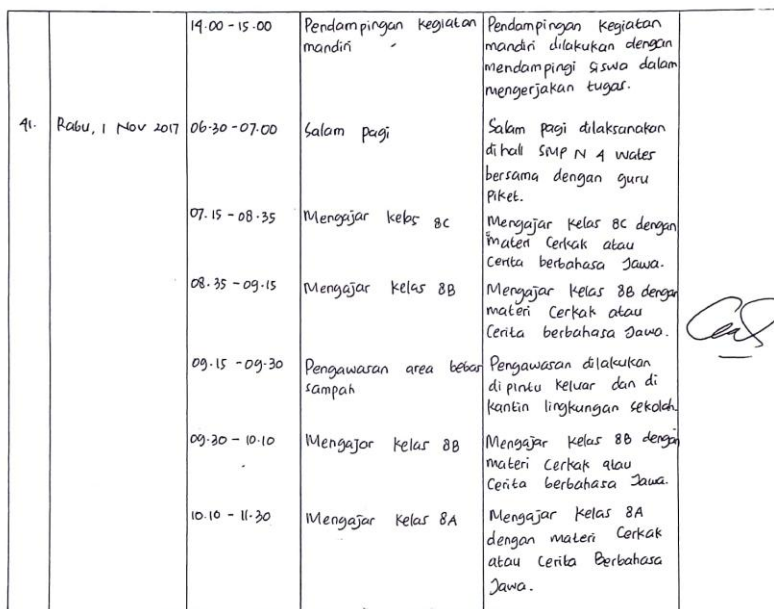 14.00 - 15.00 Pendampingan kegiatan Pendampingan kegiatan
mandiri mandiri dilakukan dengan
mendampingi siswa dalam
mengerjakan tugas.
41. Rabu, 1 Nov 2017 06.30 - 07.00 Salam pagi Salam pagi dilaksanakan
di hall SMP N 4 Wates
bersama dengan guru
Piket.
07.15 - 08.35 Mengajar kelas 8C Mengajar kelas 8C dengan
materi Cerkak atau
Cerita berbahasa Jawa.
08.35 - 09.15 Mengajar kelas 8B Mengajar kelas 8B dengan
materi Cerkak atau
Cerita berbahasa Jawa.
09.15 - 09.30 Pengawasan area bebas Pengawasan dilakukan
sampah di pintu keluar dan di
kantin lingkungan sekolah.
09.30 - 10.10 Mengajar kelas 8B Mengajar kelas 8B dengan
materi Cerkak atau
Cerita berbahasa Jawa.
10.10 - 11.30 Mengajar kelas 8A Mengajar kelas 8A
dengan materi Cerkak
atau Cerita Berbahasa
Jawa.